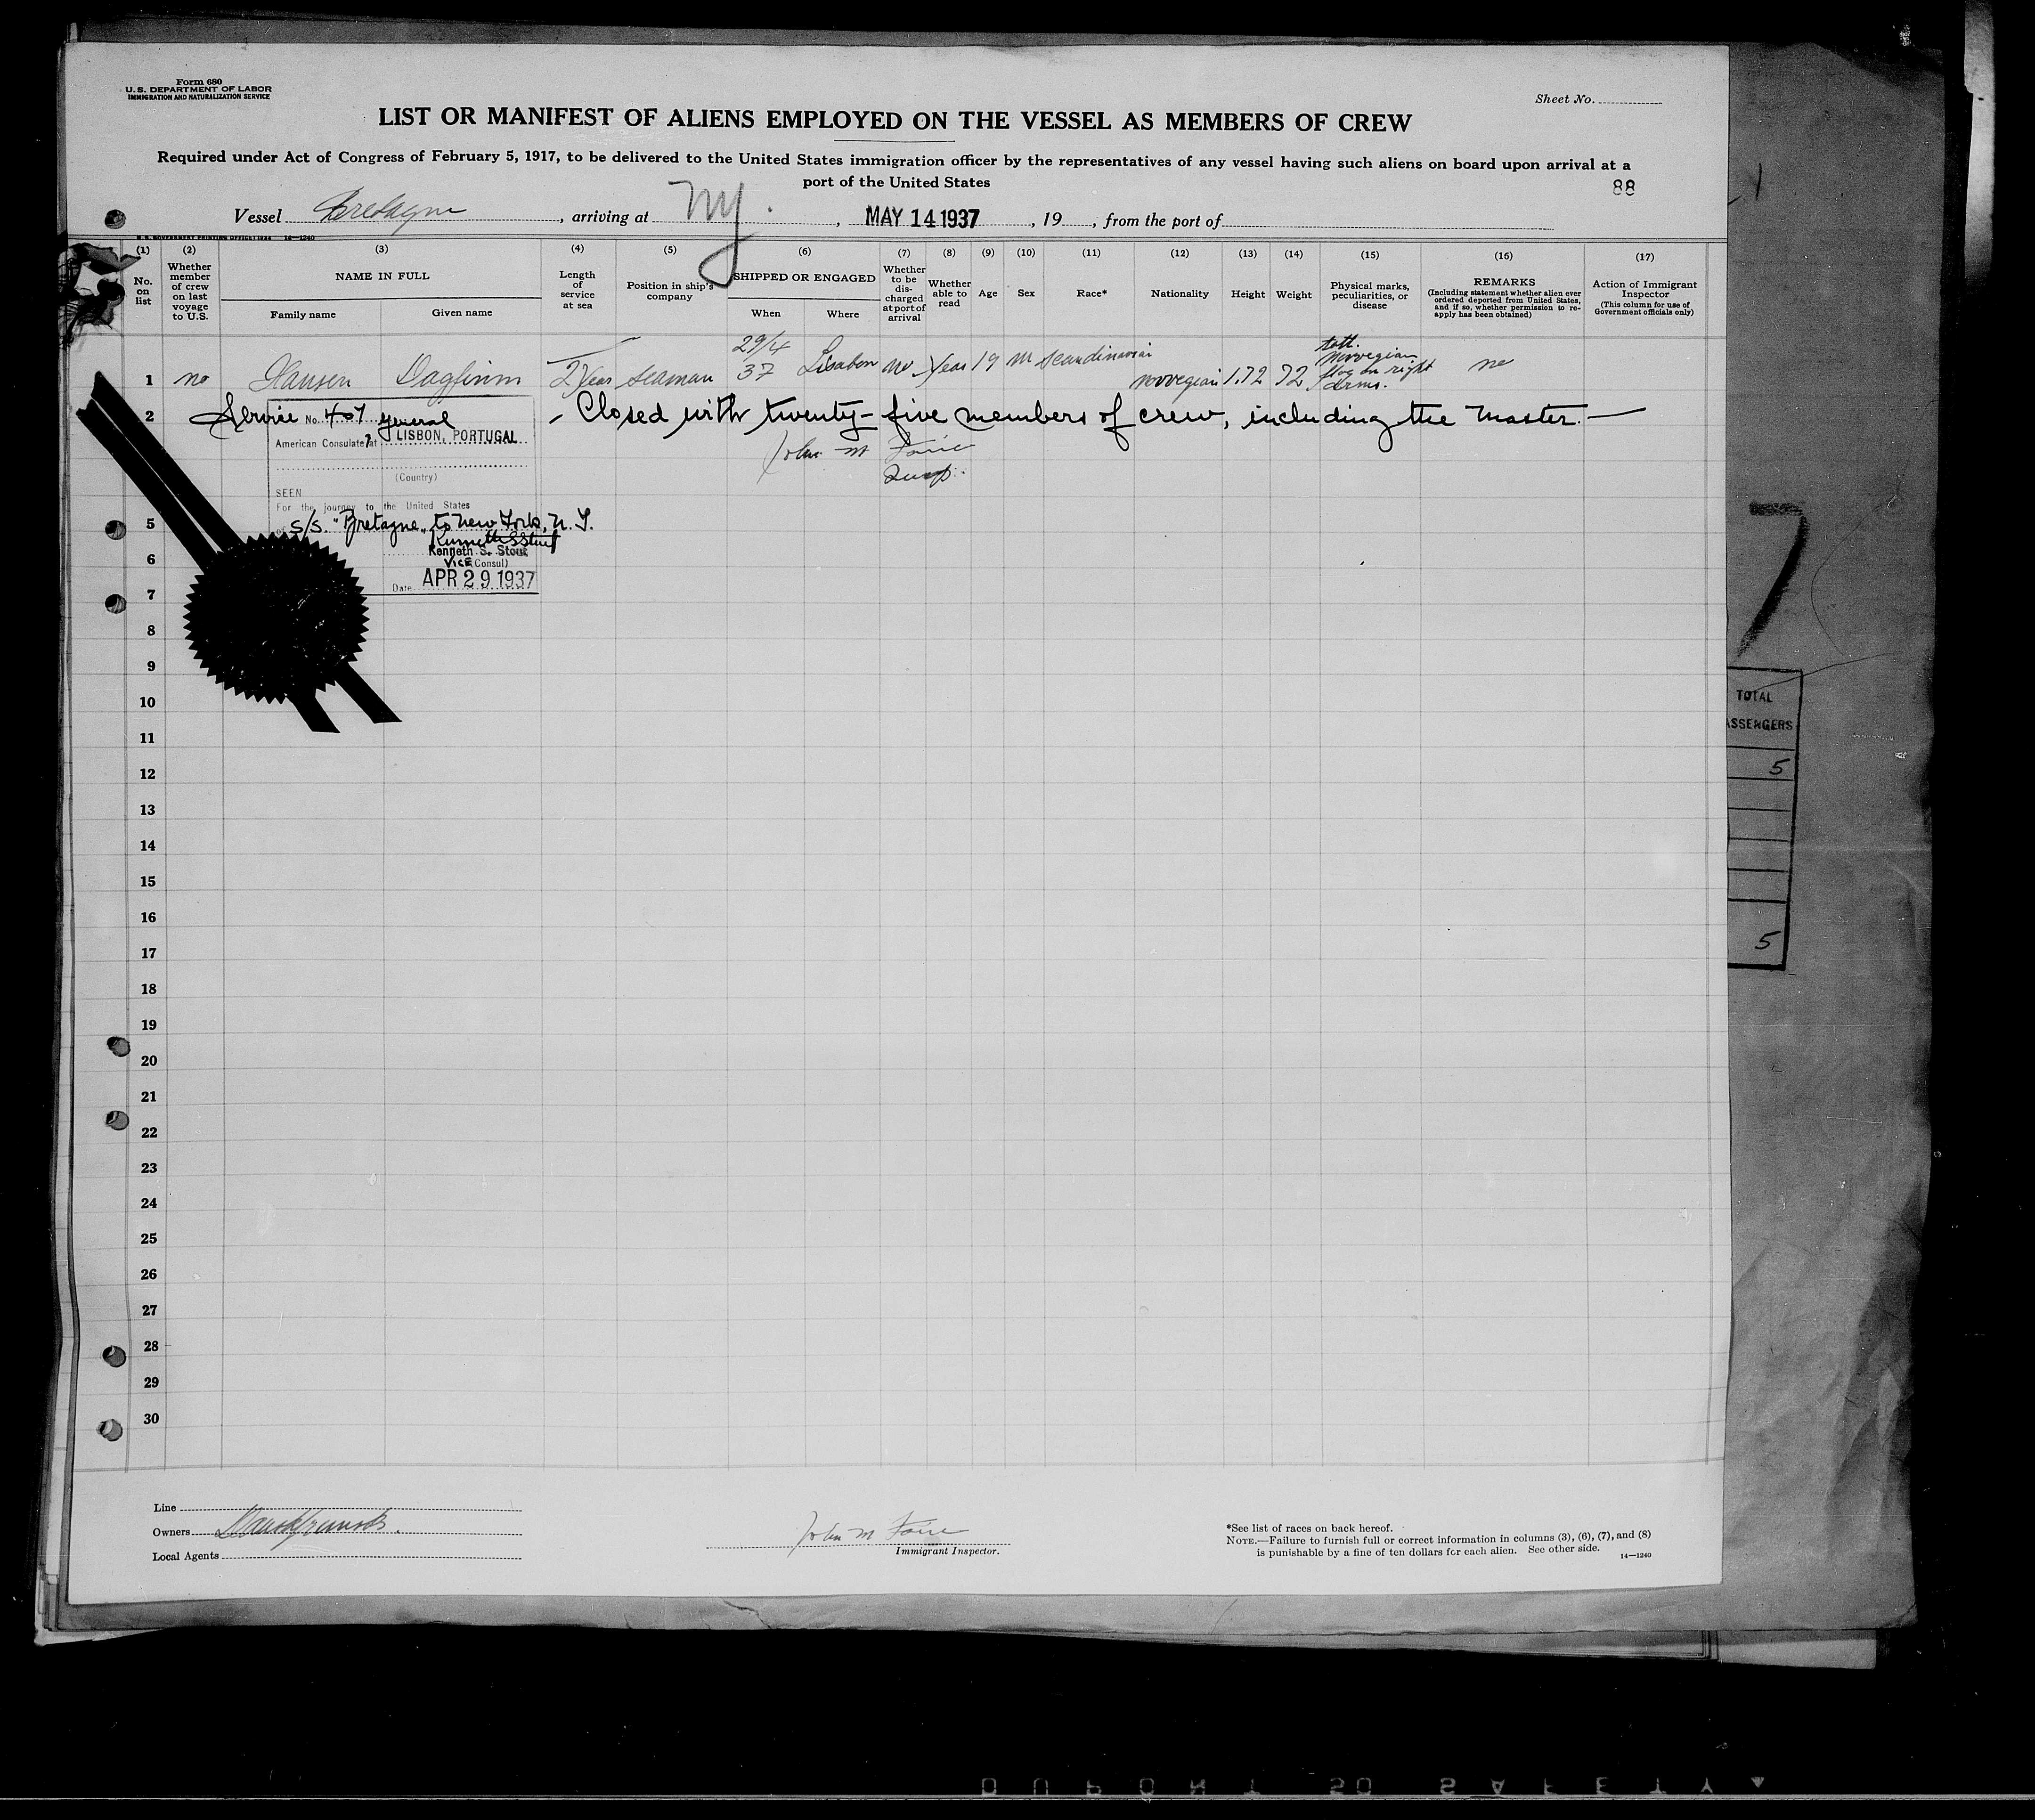 Form 680
U. S. DEPARTMENT OF LABOR
IMMIGRATION AND NATURALIZATION SERVICE
Sheet No.
LIST OR MANIFEST OF ALIENS EMPLOYED ON THE VESSEL AS MEMBERS OF CREW
Required under Act of Congress of February 5, 1917, to be delivered to the United States immigration officer by the representatives of any vessel having such aliens on board upon arrival at a
port of the United States
88
Vessel Bretagne, arriving at NY., MAY 14 1937, 19, from the port of
14—1240
(1) (2) (3) (4) (5) (6) (7) (8) (9) (10) (11) (12) (13) (14) (15) (16) (17)
No. on list
Whether member of crew on last voyage to U.S.
NAME IN FULL
Family name Given name
Length of service at sea
Position in ship's company
SHIPPED OR ENGAGED
When Where
Whether to be discharged at port of arrival
Whether able to read
Age
Sex
Race*
Nationality
Height
Weight
Physical marks, peculiarities, or disease
REMARKS
(Including statement whether alien ever ordered deported from United States, and if so, whether permission to re-apply has been obtained)
Action of Immigrant Inspector
(This column for use of Government officials only)
1 no Hansen Dagfinn 2 Year Seaman 29/4 37 Lisabon no. Yeas 19 M Scandinavian Norvegian 1,72 72 tatt. Norvegian flag on right arms. no
2 Service No. 407 general - Closed with twenty-five members of crew, including the Master.—
American Consulate at LISBON, PORTUGAL
John M
Insp.
(Country)
SEEN
For the journey to the United States
5 S/S. "Bretagne" to New York, N. Y.
Kenneth S. Stout
Kenneth S. Stout
6 Vice (Consul)
Date APR 29 1937
7
8
9
10
11
12
13
14
15
16
17
18
19
20
21
22
23
24
25
26
27
28
29
30
TOTAL
ASSENGERS
5
5
Line
Owners
Local Agents
John M
Immigrant Inspector.
*See list of races on back hereof.
NOTE.—Failure to furnish full or correct information in columns (3), (6), (7), and (8)
is punishable by a fine of ten dollars for each alien. See other side.
14—1240
DUPONT SO SAFETY